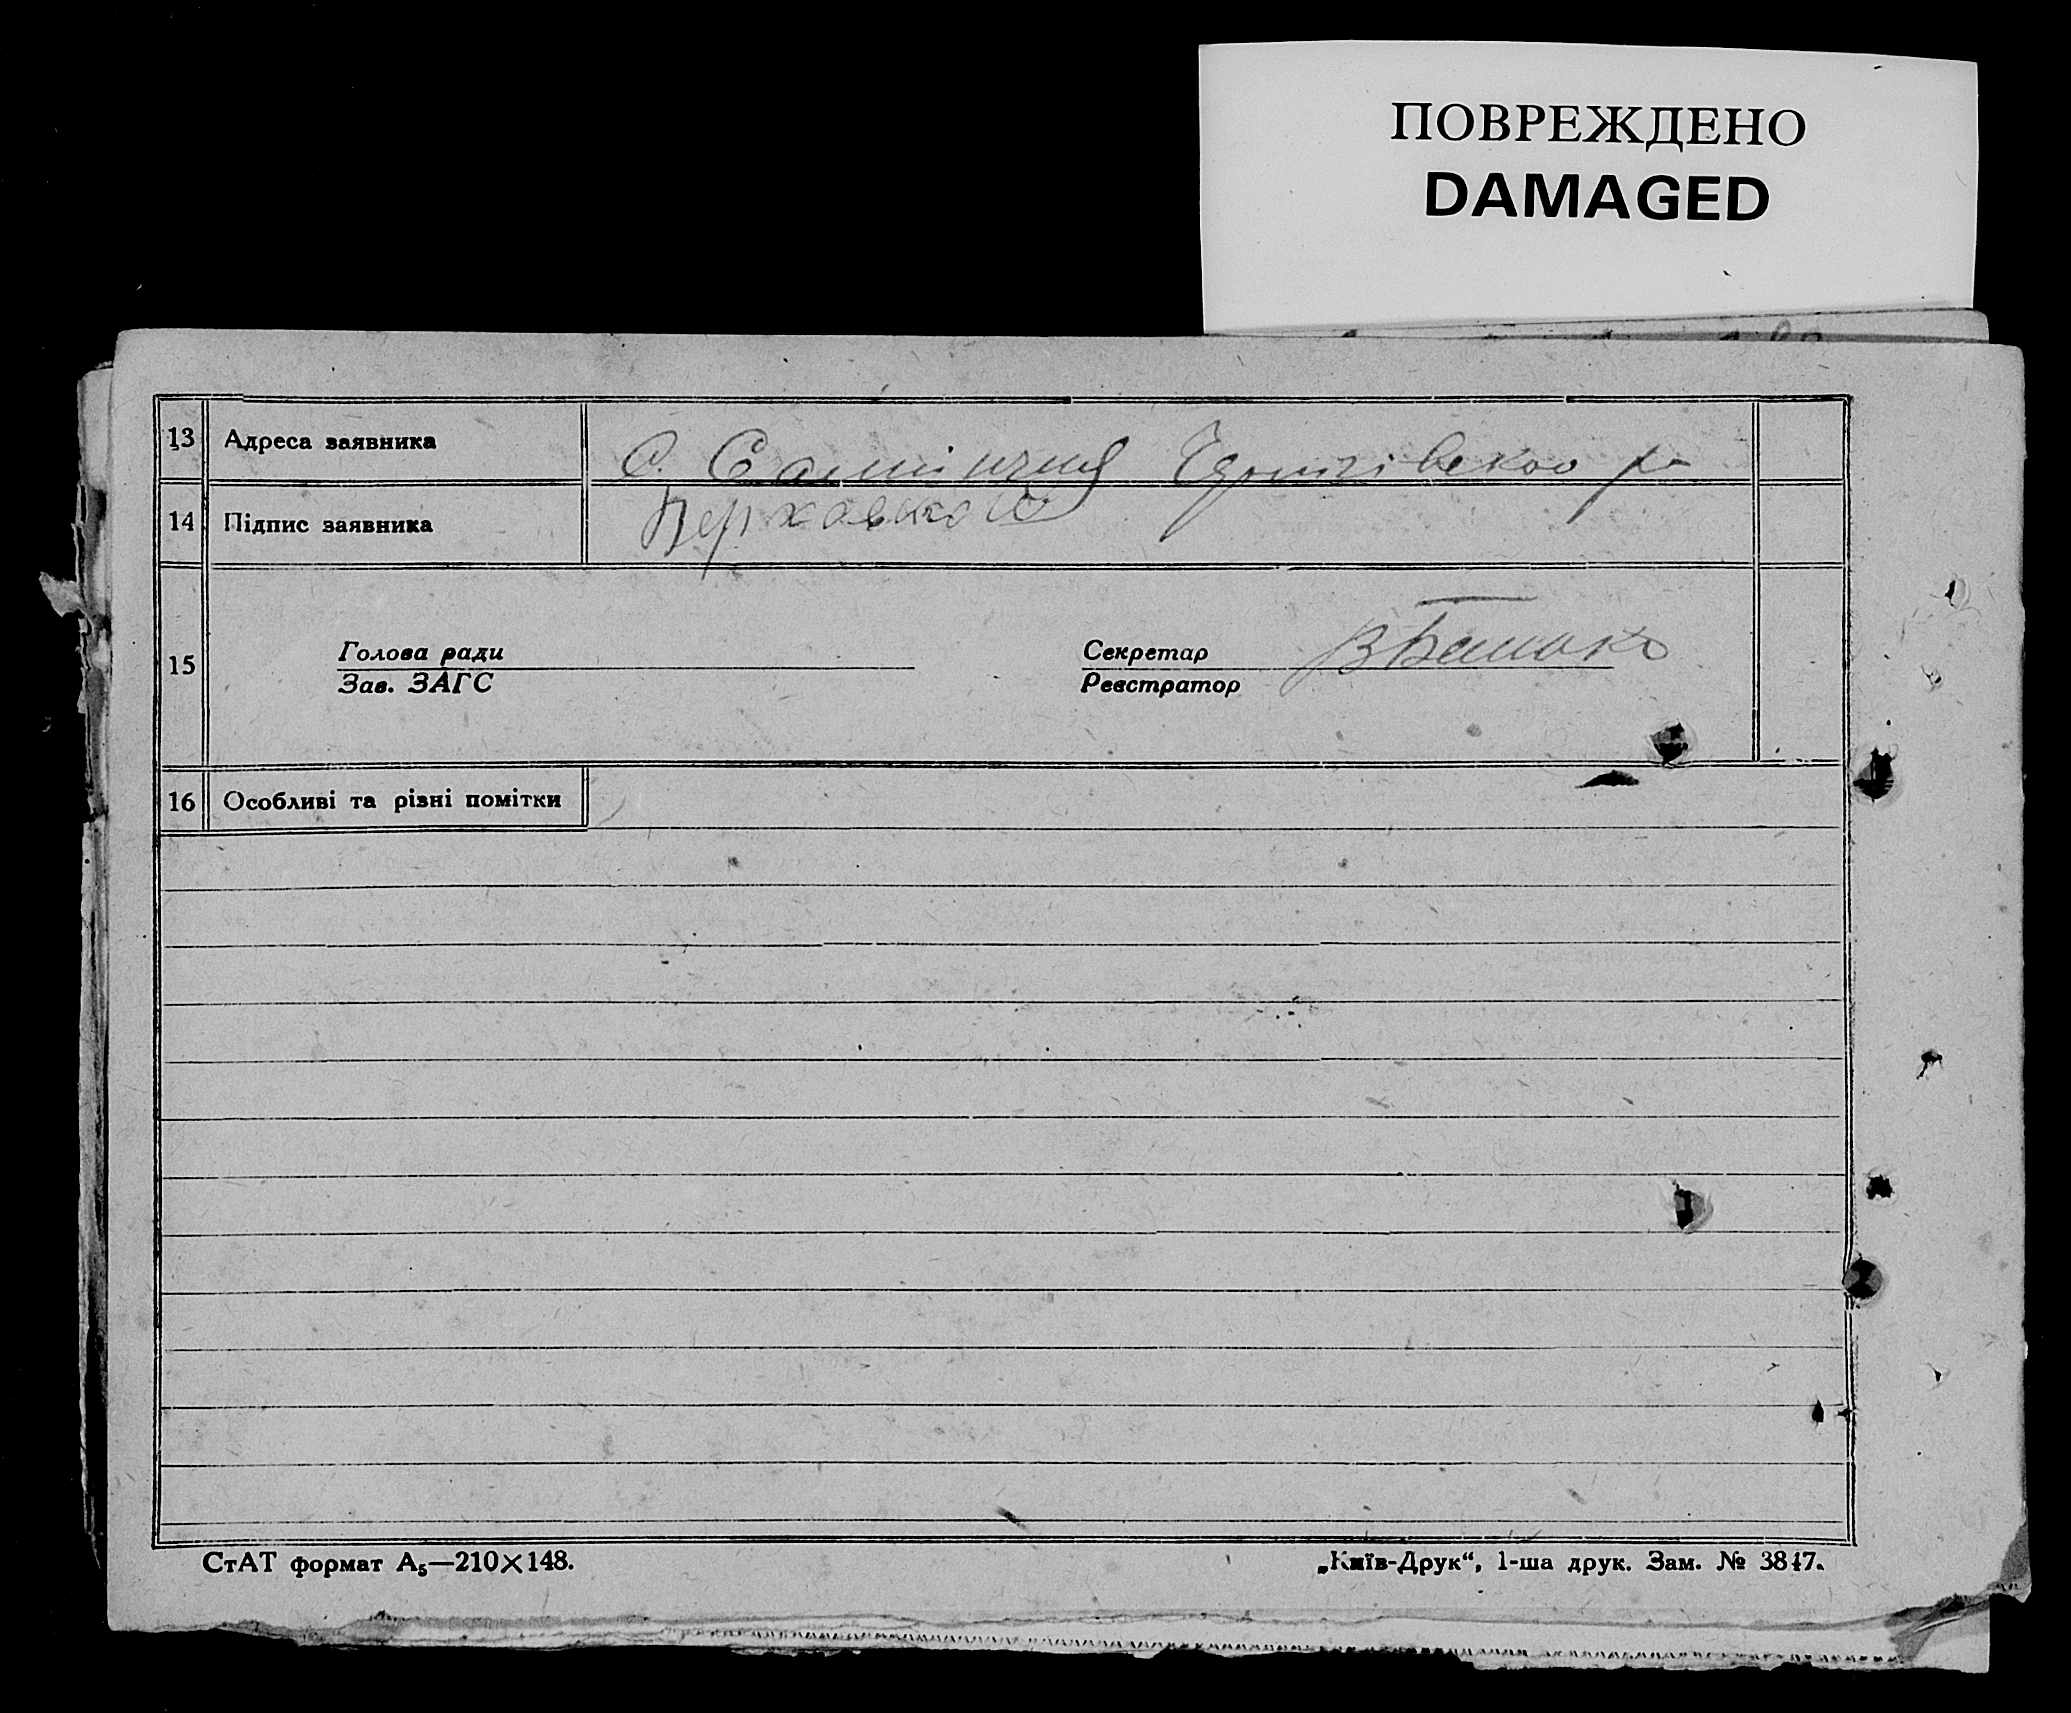 ПОВРЕЖДЕНО
DAMAGED
13 Адреса заявника С. Чернігівского р-
14 Підпис заявника
15 Голова ради Секретар
Зав. ЗАГС Реєстратор
16 Особливі та різні помітки
СтАТ формат А₅—210×148. „Київ-Друк“, 1-ша друк. Зам. № 3847.